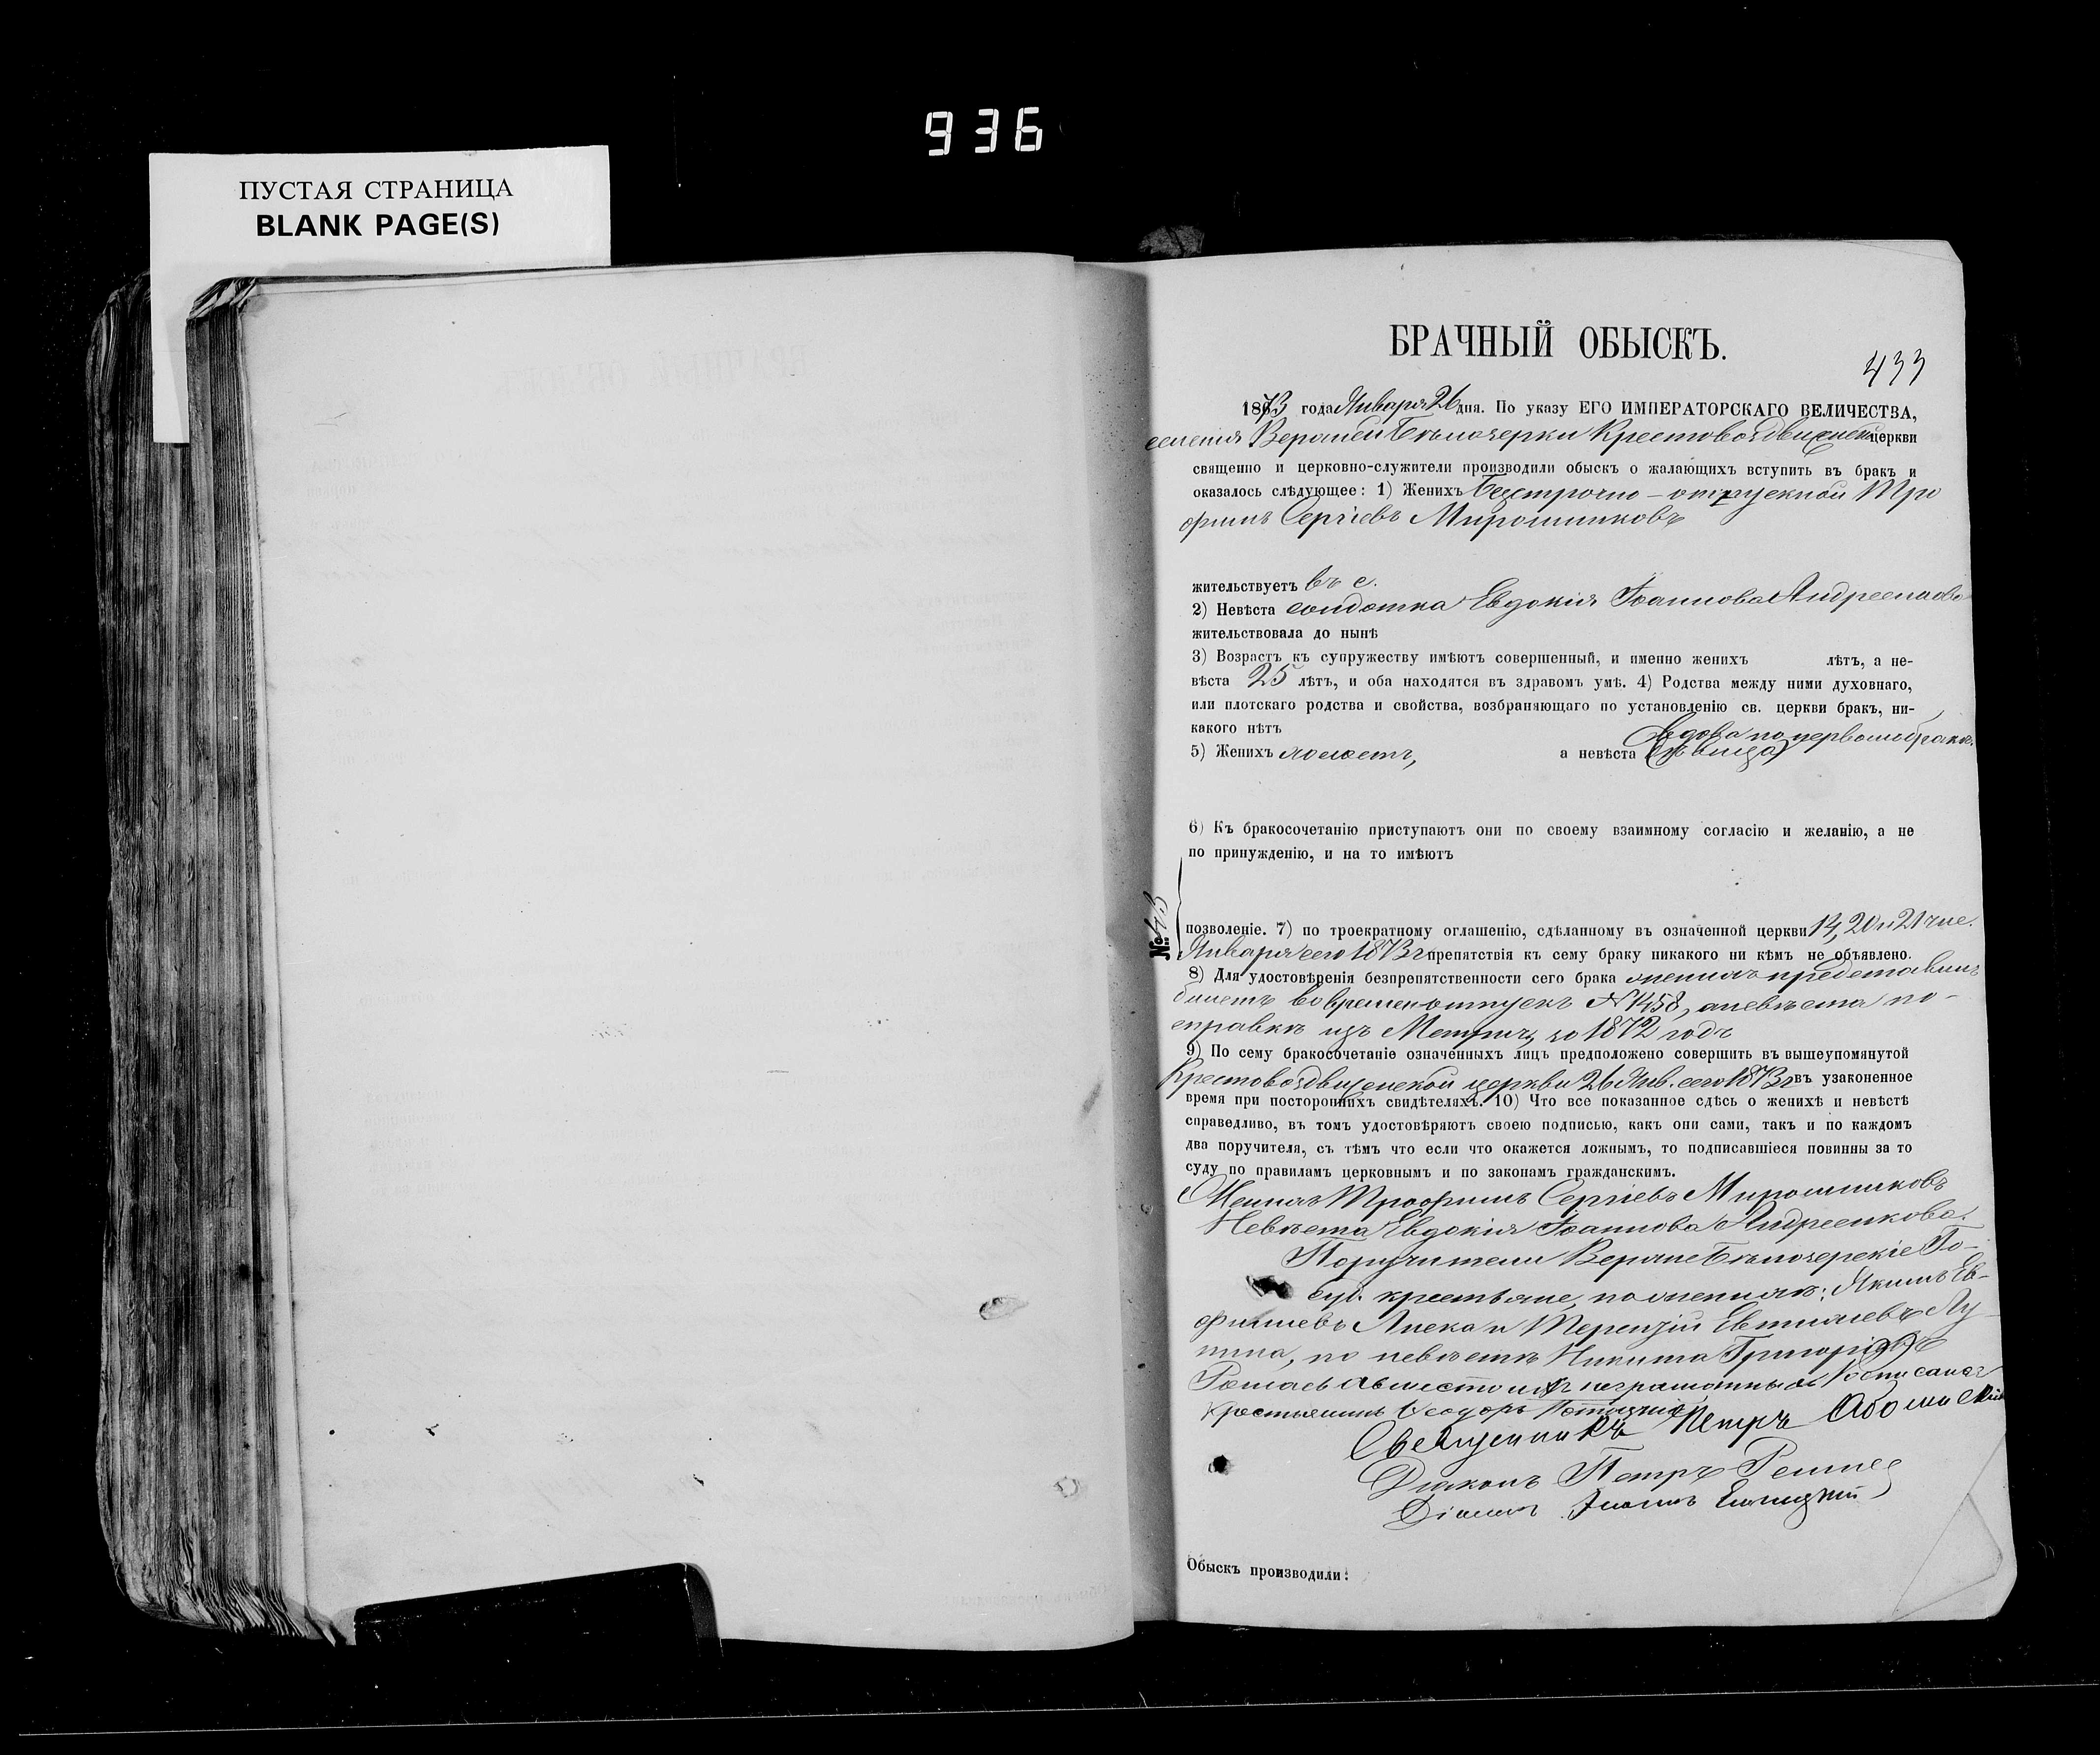 936
ПУСТАЯ СТРАНИЦА
BLANK PAGE(S)
БРАЧНЫЙ ОБЫСКЪ.
433
1873 года Января 26 дня. По указу ЕГО ИМПЕРАТОРСКАГО ВЕЛИЧЕСТВА,
церкви
священно и церковно-служители производили обыскъ о жалающихъ вступить въ бракъ и
оказалось слѣдующее: 1) Женихъ Безсрочно-отпускной Тро
фимъ Сергіевъ Мирошниковъ
жительствуетъ въ с.
2) Невѣста солдатка Евдокія Іоаннова Андреенкова
жительствовала до нынѣ
3) Возрастъ къ супружеству имѣютъ совершенный, и именно женихъ лѣтъ, а не-
вѣста 25 лѣтъ, и оба находятся въ здравомъ умѣ. 4) Родства между ними духовнаго,
или плотскаго родства и свойства, возбраняющаго по установленію св. церкви бракъ, ни-
какого нѣтъ
вдова по первомъ бракѣ
5) Женихъ холостъ, а невѣста (дѣвица)
6) Къ бракосочетанію приступаютъ они по своему взаимному согласію и желанію, а не
по принужденію, и на то имѣютъ
№
позволеніе. 7) по троекратному оглашенію, сдѣланному въ означенной церкви 14, 20 и 21 чис.
Января сего 1873 г. препятствія къ сему браку никакого ни кѣмъ не объявлено.
8) Для удостовѣренія безпрепятственности сего брака женихъ представилъ
билетъ во времен. отпускъ № 1458, а невѣста по-
справкѣ изъ Метрич. за 1872 годъ
9) По сему бракосочетаніе означенныхъ лицъ предположено совершить въ вышеупомянутой
Крестовоздвиженской церкви 26 Янв. сего 1873 г. въ узаконенное
время при постороннихъ свидѣтеляхъ. 10) Что все показанное сдѣсь о женихѣ и невѣстѣ
справедливо, въ томъ удостовѣряютъ своею подписью, какъ они сами, такъ и по каждомъ
два поручителя, съ тѣмъ что если что окажется ложнымъ, то подписавшіеся повинны за то
суду по правиламъ церковнымъ и по законамъ гражданскимъ.
Женихъ Трофимъ Сергіевъ Мирошниковъ
Невѣста Евдокія Іоаннова Андреенкова.
Поручители Верхне Бѣлозерскіе Го-
суд. крестьяне, по женихѣ: Якимъ Ев-
фимовъ и Терентій
по невѣстѣ Никита Григорій
а вмѣсто ихъ неграмотныхъ росписался
крестьянинъ Ѳеодоръ
Священникъ Петръ
Діаконъ Петръ
Обыскъ производили: